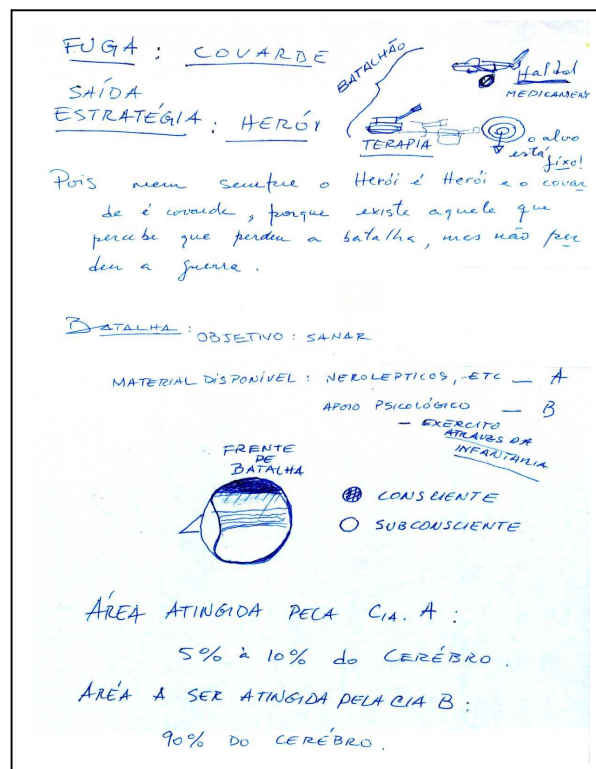 FUGA : COVARDE
SAÍDA
ESTRATÉGIA : HERÓI
BATALHÃO
Haldol
MEDICAMENT
TERAPIA
o alvo
está
fixo!
Pois nem sempre o Herói é Herói e o covar
de é covarde, porque existe aquele que
percebe que perdeu a batalha, mas não per
deu a guerra.
BATALHA : OBJETIVO : SANAR
MATERIAL DISPONÍVEL : NEROLEPTICOS, ETC — A
APOIO PSICOLÓGICO — B
— EXERCITO
ATRAVES DA
INFANTARIA
FRENTE
DE
BATALHA
CONSCIENTE
SUBCONSCIENTE
ÁREA ATINGIDA PELA CIA. A :
5% à 10% do CERÉBRO.
ÁREA A SER ATINGIDA PELA CIA B :
90% DO CERÉBRO.